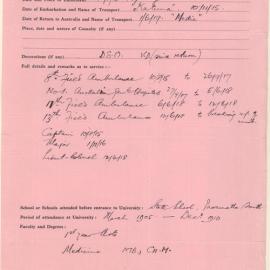 Date of Embarkation and Name of Transport. "Karoola" 10/11/15.
Date of Return to Australia and Name of Transport. 1/6/19. "Medic"
Place, date and nature of Casualty (if any)
Decorations (if any) D.S.O. V.D. (since return)
Full details and remarks as to service:—
8th Field Ambulance to
North Australian Hospital to 5/6/18
14th Field Ambulance 6/6/18 to 12/6/18
13th Field Ambulance 12/6/18 to breaking up of
unit.
Captain 10/8/15
Major 1/1/16
Lieut-Colonel 12/6/18
School or Schools attended before entrance to University: State School, Parramatta South
Period of attendance at University: March 1905 — Dec. 1910
Faculty and Degree:
1st year Arts
Medicine M.B., Ch.M.